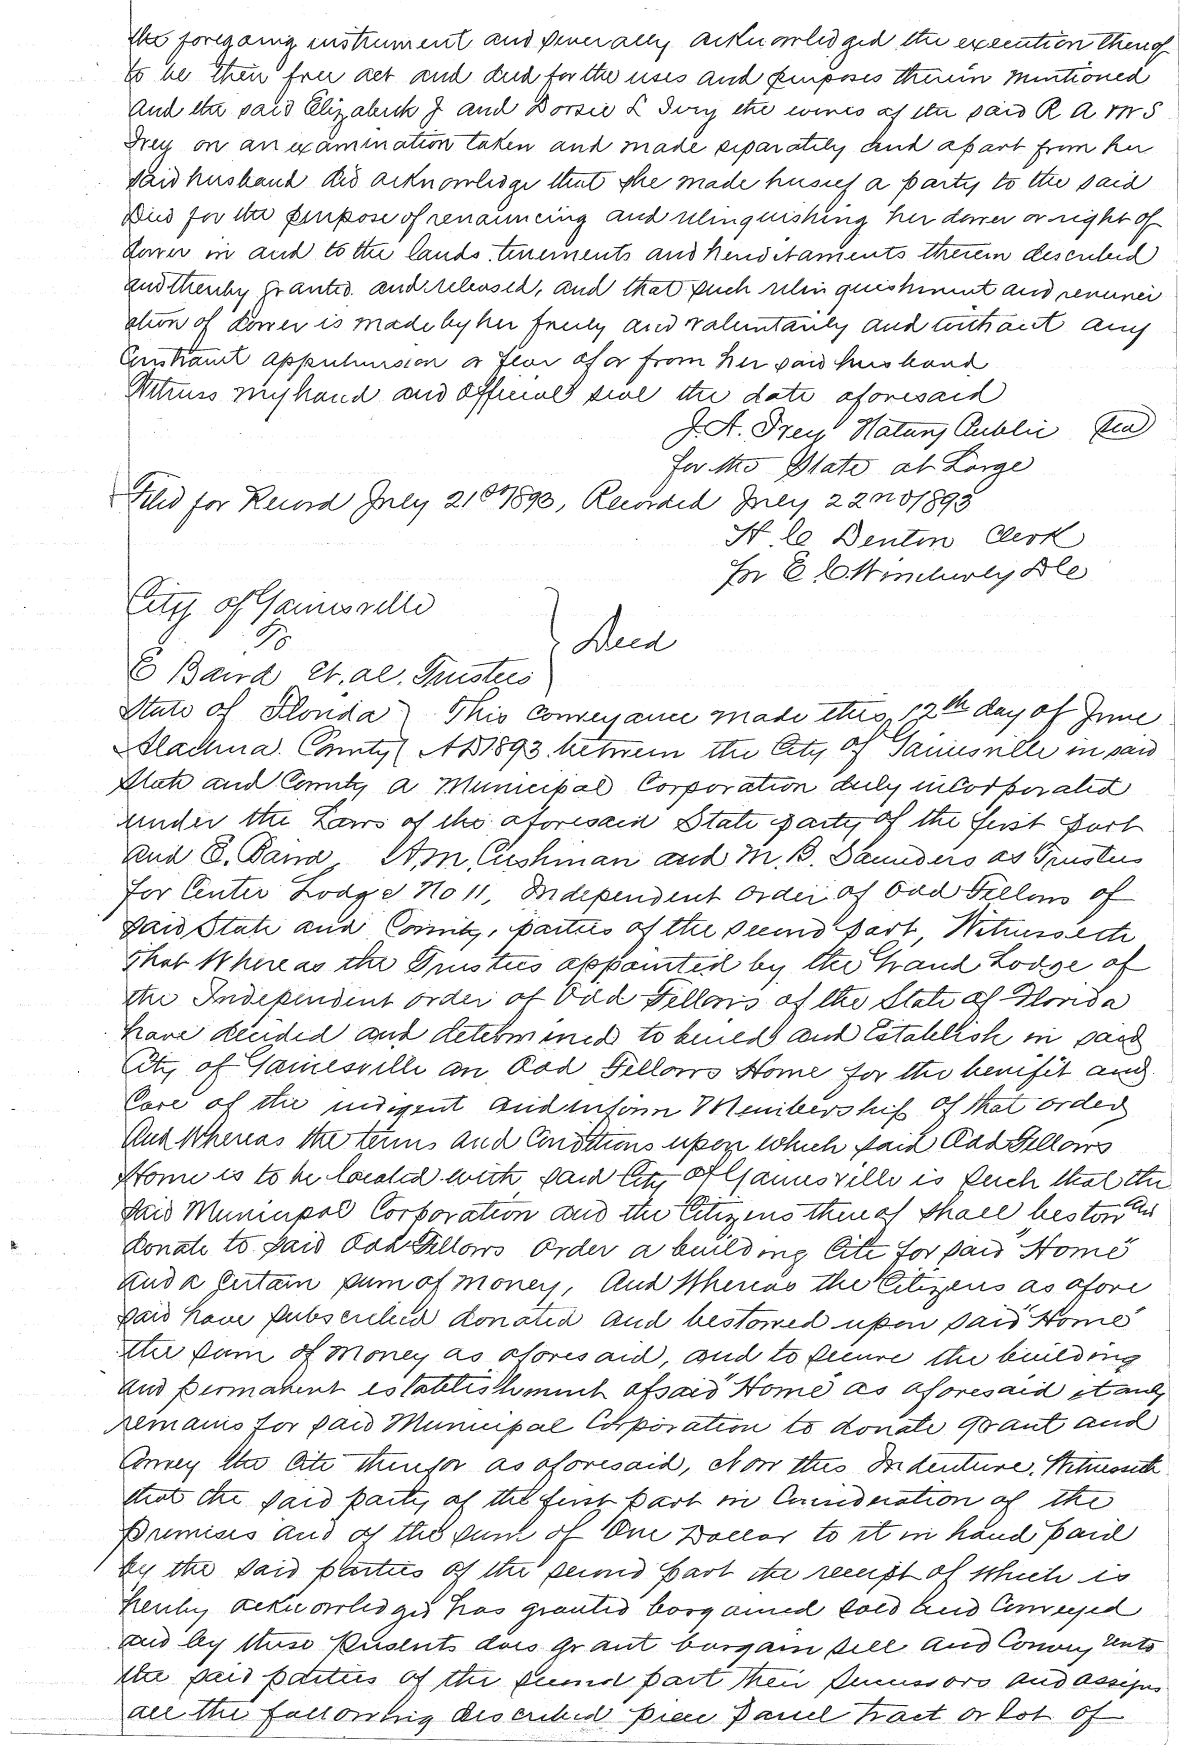 the foregoing instrument and severally acknowledged the execution thereof
to be their free act and deed for the uses and purposes therein mentioned
and the said Elizabeth J and Dorsie L Ivey the wives of the said R A M S
Ivey on an examination taken and made separately and apart from her
said husband did acknowledge that she made herself a party to the said
Deed for the purpose of renouncing and relinquishing her dower or right of
dower in and to the lands tenements and hereditaments therein described
and thereby granted and released, and that such relinquishment and renunci
ation of dower is made by her freely and voluntarily and without any
Constraint apprehension or fear of or from her said husband
Witness my hand and official seal the date aforesaid
J. A. Ivey Notary Public Seal
for the State at Large
Filed for Record July 21st 1893, Recorded July 22nd 1893
H. C Denton Clerk
for E. C. Wimberly D C
City of Gainesville
To
E Baird et. al. Trustees
Deed
State of Florida } This conveyance made this 12th day of June
Alachua County { AD 1893 between the City of Gainesville in said
State and County a Municipal Corporation duly incorporated
under the Laws of the aforesaid State party of the first part
and E. Baird, A. M. Cushman and M. B. Saunders as Trustees
for Center Lodge No 11, Independent order of Odd Fellows of
said State and County, parties of the second part, Witnesseth
that Whereas the Trustees appointed by the Grand Lodge of
the Independent order of Odd Fellows of the State of Florida
have decided and determined to build and Establish in said
City of Gainesville an Odd Fellows Home for the benefit and
Care of the indigent and infirm Membership of that order
And Whereas the terms and Conditions upon which said Odd Fellows
Home is to be located with said City of Gainesville is such that the
said Municipal Corporation and the Citizens thereof shall bestow and
donate to said Odd Fellows Order a building Cite for said "Home"
and a certain sum of money, And Whereas the Citizens as afore
said have subscribed donated and bestowed upon said "Home"
the sum of money as aforesaid, and to secure the building
and permanent establishment of said "Home" as aforesaid it only
remains for said Municipal Corporation to donate grant and
Convey the Cite therefor as aforesaid, Now this Indenture, Witnesseth
that the said party of the first part in Consideration of the
premises and of the sum of One Dollar to it in hand paid
by the said parties of the second part the receipt of which is
hereby acknowledged has granted bargained sold and Conveyed
and by these presents does grant bargain sell and Convey unto
the said parties of the second part their successors and assigns
all the following described piece parcel tract or lot of